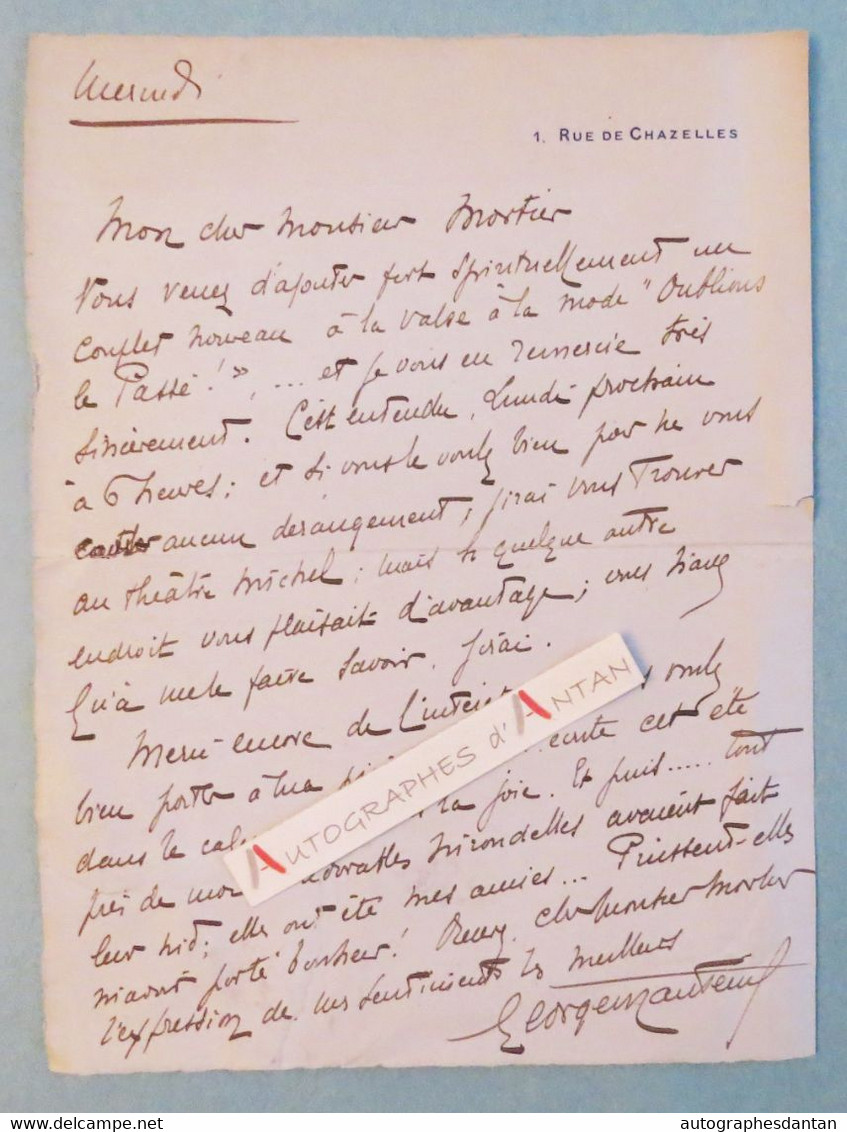 Mercredi
1, RUE DE CHAZELLES
Mon cher Monsieur Mortier
Vous venez d'ajouter fort spirituellement un
couplet nouveau à la valse à la mode "Oublions
le Passé!", ... et je vous en remercie très
sincèrement. C'est entendu, Lundi prochain
à 6 heures; et si vous le voulez bien pour ne vous
causer aucun dérangement, j'irai vous trouver
au théâtre Michel; mais si quelque autre
endroit vous plaisait d'avantage; vous n'avez
qu'à me le faire savoir. J'irai.
Merci encore de l'intérêt voulez
bien porter à ma écrite cet été
dans le la joie. Et puis..... tout
près de moi hirondelles avaient fait
leur nid; elles ont été mes amies... Puissent-elles
m'avoir porté bonheur! Recevez, cher Monsieur Mortier
l'expression de mes sentiments les meilleurs
Georges Nanteuil
AUTOGRAPHES d'ANTAN
autographesdantan